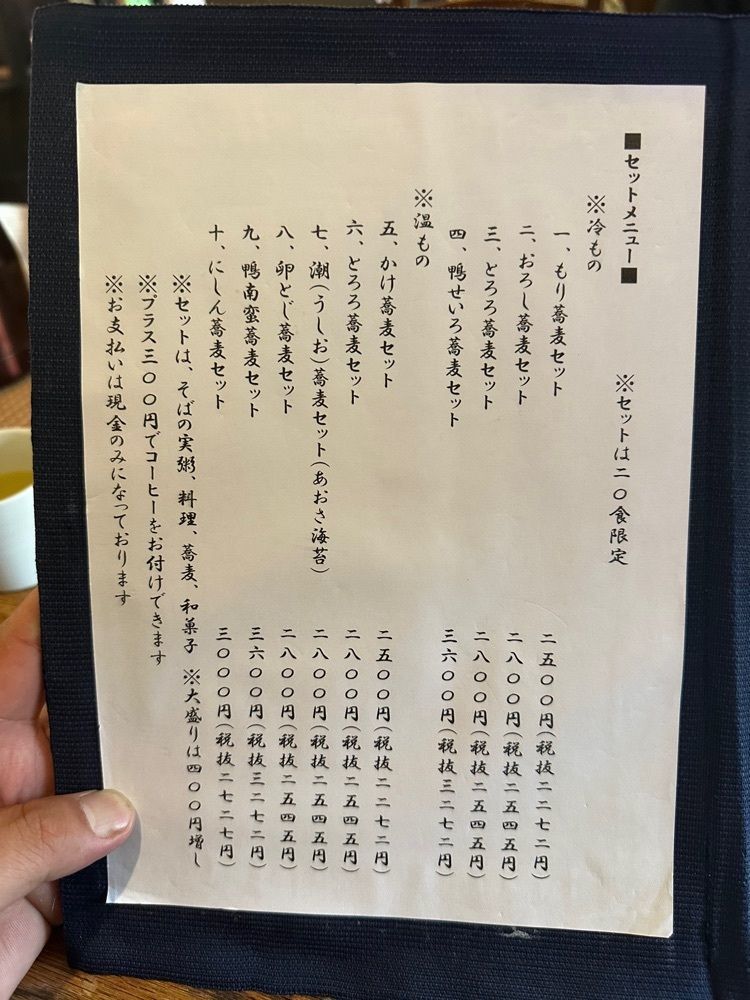 ■セットメニュー■　※セットは二〇食限定
※冷もの
一、もり蕎麦セット　二五〇〇円(税抜二二七二円)
二、おろし蕎麦セット　二八〇〇円(税抜二五四五円)
三、とろろ蕎麦セット　二八〇〇円(税抜二五四五円)
四、鴨せいろ蕎麦セット　三六〇〇円(税抜三二七二円)
※温もの
五、かけ蕎麦セット　二五〇〇円(税抜二二七二円)
六、とろろ蕎麦セット　二八〇〇円(税抜二五四五円)
七、潮(うしお)蕎麦セット(あおさ海苔)　二八〇〇円(税抜二五四五円)
八、卵とじ蕎麦セット　二八〇〇円(税抜二五四五円)
九、鴨南蛮蕎麦セット　三六〇〇円(税抜三二七二円)
十、にしん蕎麦セット　三〇〇〇円(税抜二七二七円)
※セットは、そばの実粥、料理、蕎麦、和菓子　※大盛りは四〇〇円増し
※プラス三〇〇円でコーヒーをお付けできます
※お支払いは現金のみになっております